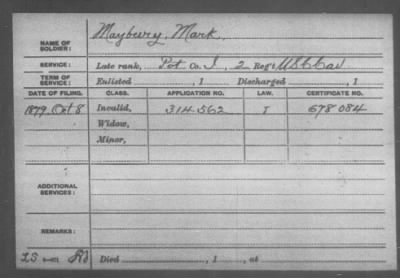 NAME OF SOLDIER: Maybury, Mark.
SERVICE: Late rank, Pvt Co. I, 2 Reg't U.S.C. Cav
TERM OF SERVICE: Enlisted , 1 Discharged , 1
DATE OF FILING. CLASS. APPLICATION NO. LAW. CERTIFICATE NO.
1879, Oct 8 Invalid, 314.562 678 084
Widow,
Minor,
ADDITIONAL SERVICES:
REMARKS:
Died , 1 , at